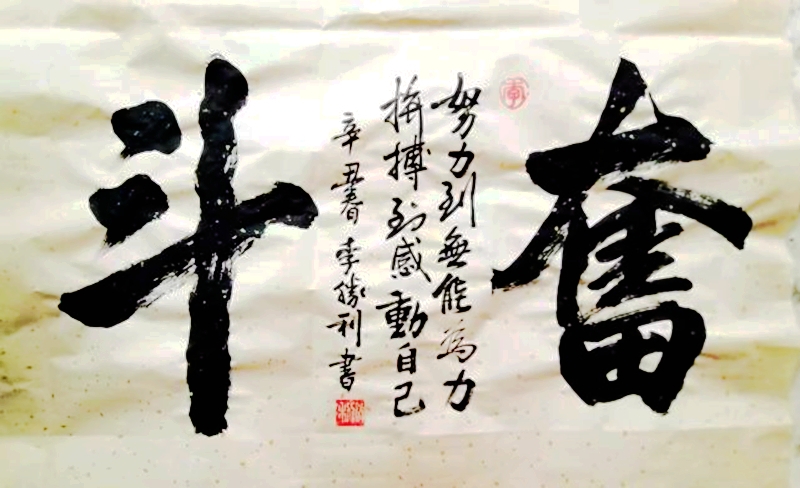 奮
努力到無能為力
拼搏到感動自己
辛丑春 季勝利書
斗